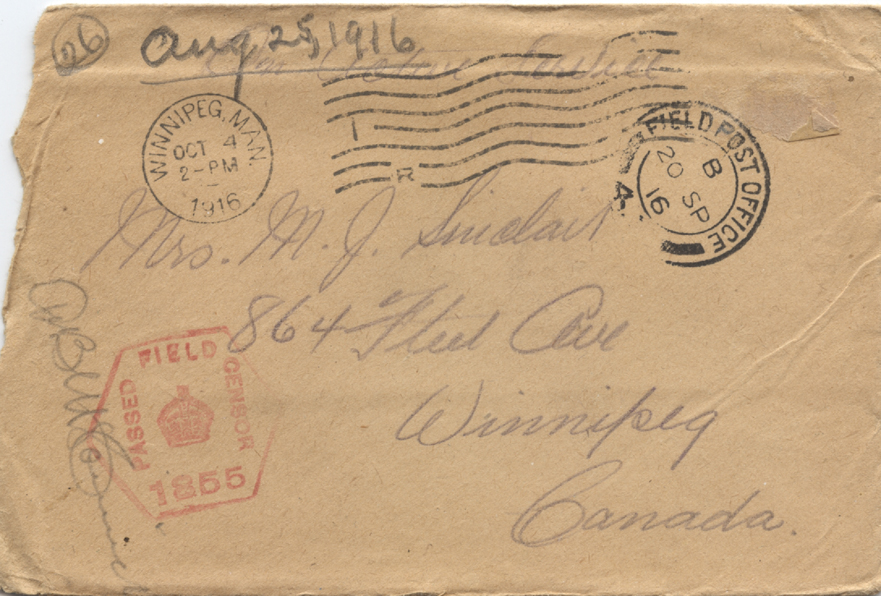 26
Aug 25, 1916
On Active Service
WINNIPEG, MAN.
OCT 4
2-PM
1916
R
FIELD POST OFFICE
B
20 SP
16
4
Mrs. M. J. Sinclair
864 Fleet Ave
Winnipeg
Canada.
PASSED FIELD CENSOR
1855